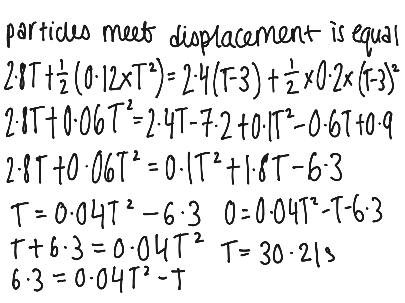 particles meet displacement is equal
2.8T+½(0.12×T²)=2.4(T-3)+½×0.2×(T-3)²
2.8T+0.06T²=2.4T-7.2+0.1T²-0.6T+0.9
2.8T+0.06T²=0.1T²+1.8T-6.3
T=0.04T²-6.3 0=0.04T²-T-6.3
T+6.3=0.04T² T=30.21s
6.3=0.04T²-T